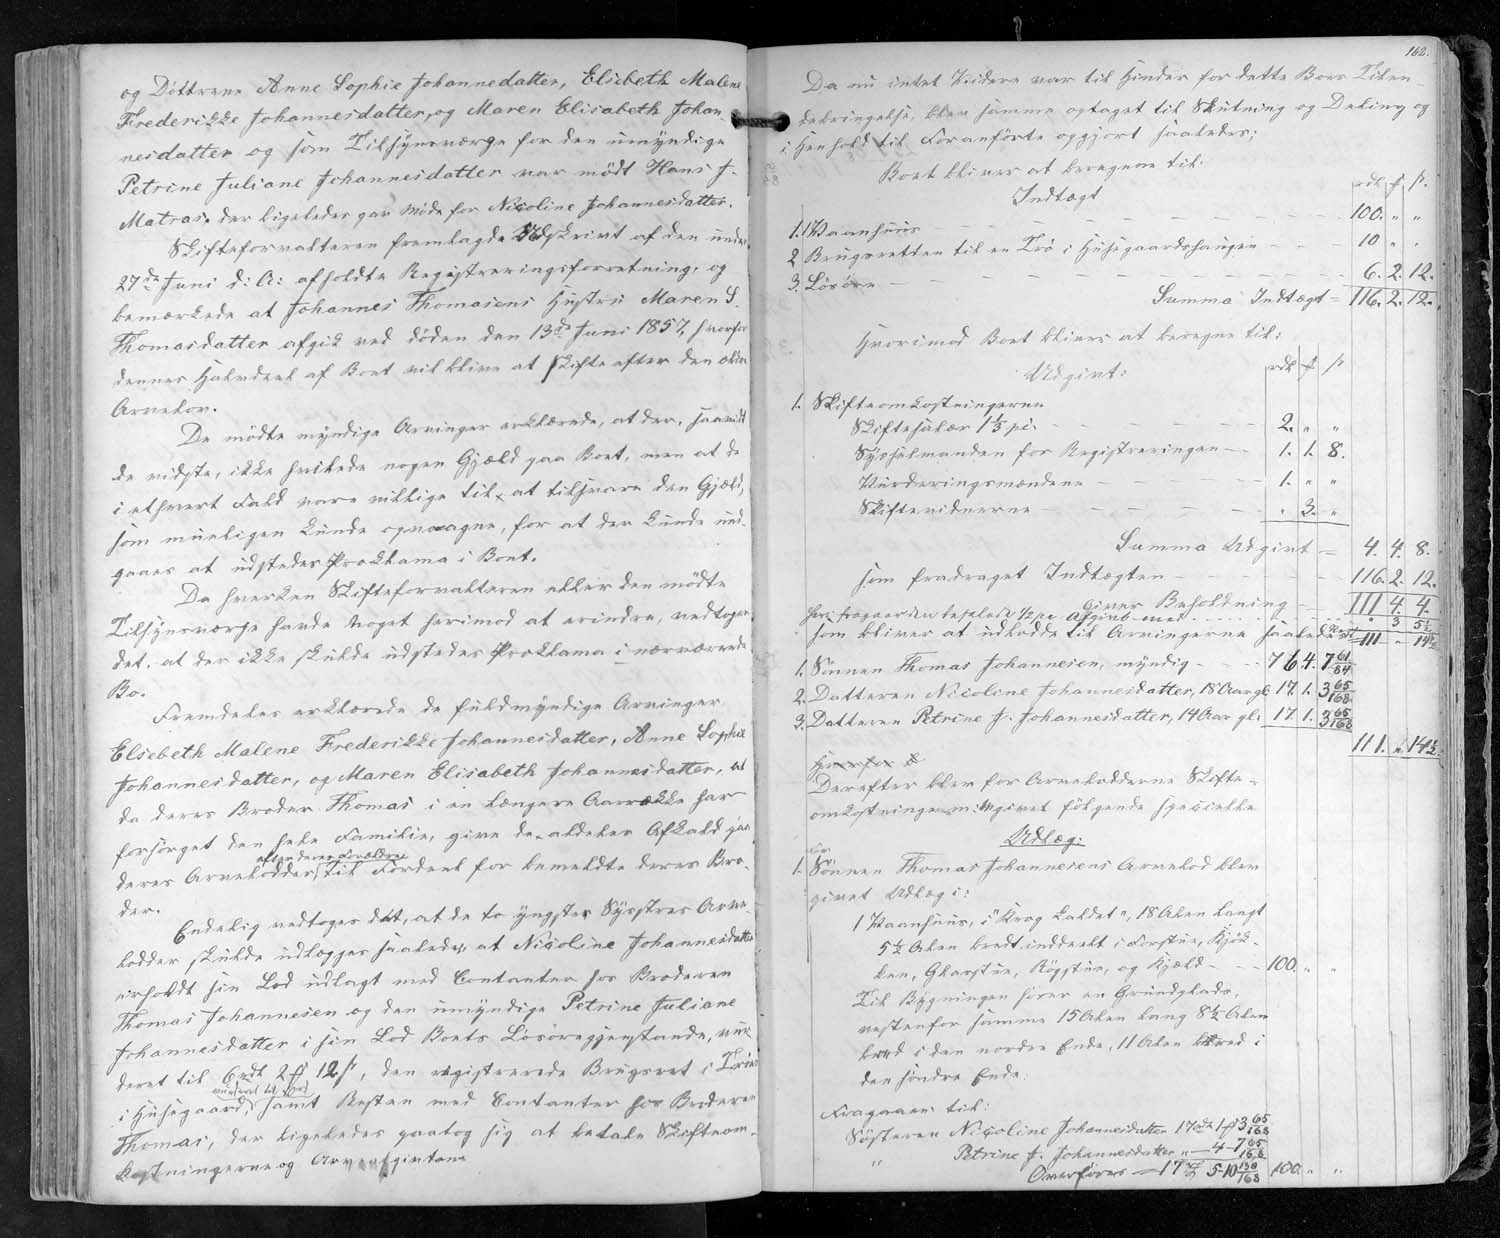 og Döttrene Anne Sophie Johannedatter, Elsebeth Malene
Frederikke Johannesdatter, og Maren Elisabeth Johan-
nesdatter og som Tilsynsværge for den umyndige
Petrine Juliane Johannesdatter var mödt Hans J.
Matras, der ligeledes gav Möde for Nicoline Johannesdatter.
Skifteforvalteren fremlagde Udskrivt af den under
27de Juni d: A: afholdte Registreringsforretning, og
bemærkede at Johannes Thomasens Hustru Maren S.
Thomasdatter afgik ved döden den 13de Juni 1857, hvorfor
dennes Halvdeel af Boet vil blive at skifte efter den ældre
Arvelov.
De mödte myndige Arvinger erklærede, at der, saavidt
de vidste, ikke hvilede nogen Gjæld paa Boet, men at de
i ethvert Fald vare villige til at tilsvare den Gjæld,
som mueligen kunde opvaagne, for at der kunde und-
gaaes at udstedes Proklama i Boet.
Da hverken Skifteforvalteren eller den mödte
Tilsynsværge havde Noget herimod at erindre, vedtoges
det, at der ikke skulde udstedes Proklama i nærværende
Bo.
Fremdeles erklærede de fuldmyndige Arvinger
Elsebeth Malene Frederikke Johannesdatter, Anne Sophie
Johannesdatter, og Maren Elisabeth Johannesdatter, at
da deres Broder Thomas i en længere Aarrække har
forsörget den hele Familie, give de aldeles Afkald paa
efter deres Forældre
deres Arvelodder, til Fordeel for bemeldte deres Bro-
der.
Endelig vedtoges det, at de to yngste Systres Arve-
lodder skulde udlægges saaledes, at Nicoline Johannesdatter
erholdt sin Lod udlagt med Contanter hos Broderen
Thomas Johannesen og den umyndige Petrine Juliane
Johannesdatter i sin Lod Boets Lösöregjenstande, vur-
deret til 6 rdl 2 f 12 s, den registrerede Brugsret i Tröen
vurderet til 10 rd
i Husegaard, samt Resten med Contanter hos Broderen
Thomas, der ligeledes paatog sig at betale Skifteom-
kostningerne og Arveafgivten
162.
Da nu intet Videre var til Hinder for dette Boes Tilen-
debringelse, blev samme optaget til Slutning og Deling og
i Henhold til Foranförte opgjort saaledes;
Boet bliver at beregne til:
Indtægt rdl f s.
1. 1 Vaanhuus 100. " "
2 Brugsretten til en Trö i Husegaardshaugen 10 " "
3. Lösöre 6. 2. 12.
Summa Indtægt = 116. 2. 12.
Hvorimod Boet bliver at beregne til:
Udgivt: rdl f s
1. Skifteomkostningerne
Skiftesalær 1 1/3 pc. 2. " "
Sysselmanden for Registreringen 1. 1. 8.
Vurderingsmændene 1. " "
Skiftevidnerne " 3. "
Summa Udgivt = 4. 4. 8.
som fradraget Indtægten 116. 2. 12.
giver Beholdning 111 4. 4.
1/2 pc Afgivt med " 3 5 1/2
som bliver at udlodde til Arvingerne saaledes 111 " 14 1/2
1. Sönnen Thomas Johannesen, myndig 76. 4. 7 61/84
2. Datteren Nicoline Johannesdatter, 18 Aar gl: 17. 1. 3 65/168
3. Datteren Petrine J. Johannesdatter, 14 Aar gl: 17 1. 3 65/168
111. " 14 1/2
Derefter blev for Arvelodderne Skifte-
omkostninger m: v: givet fölgende specielle
Udlæg:
For
1. Sönnen Thomas Johannesens Arvelod blev
givet Udlæg i:
1 Vaanhuus, "i Krog kaldet", 18 Alen langt
5 1/2 Alen bredt inddeelt i Forstue, Kjök-
ken, Glarstue, Rögstue, og Kjæld 100. " "
Til Bygningen hörer en Grundplads,
vestenfor samme 15 Alen lang 8 1/2 Alen
bred i den nordre Ende, 11 Alen bred i
den söndre Ende:
Fragaaer til:
Systeren Nicoline Johannesdatter 17 rdl 1 f 3 65/168
" Petrine J. Johannesdatter " 4 - 7 65/168
Overföres 17 rdl 5 - 10 130/168 100. " "